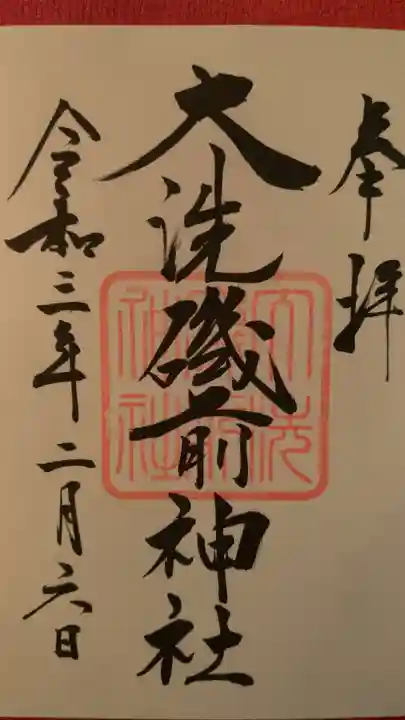 奉拝
大洗磯前神社
令和三年二月六日
大洗磯前神社